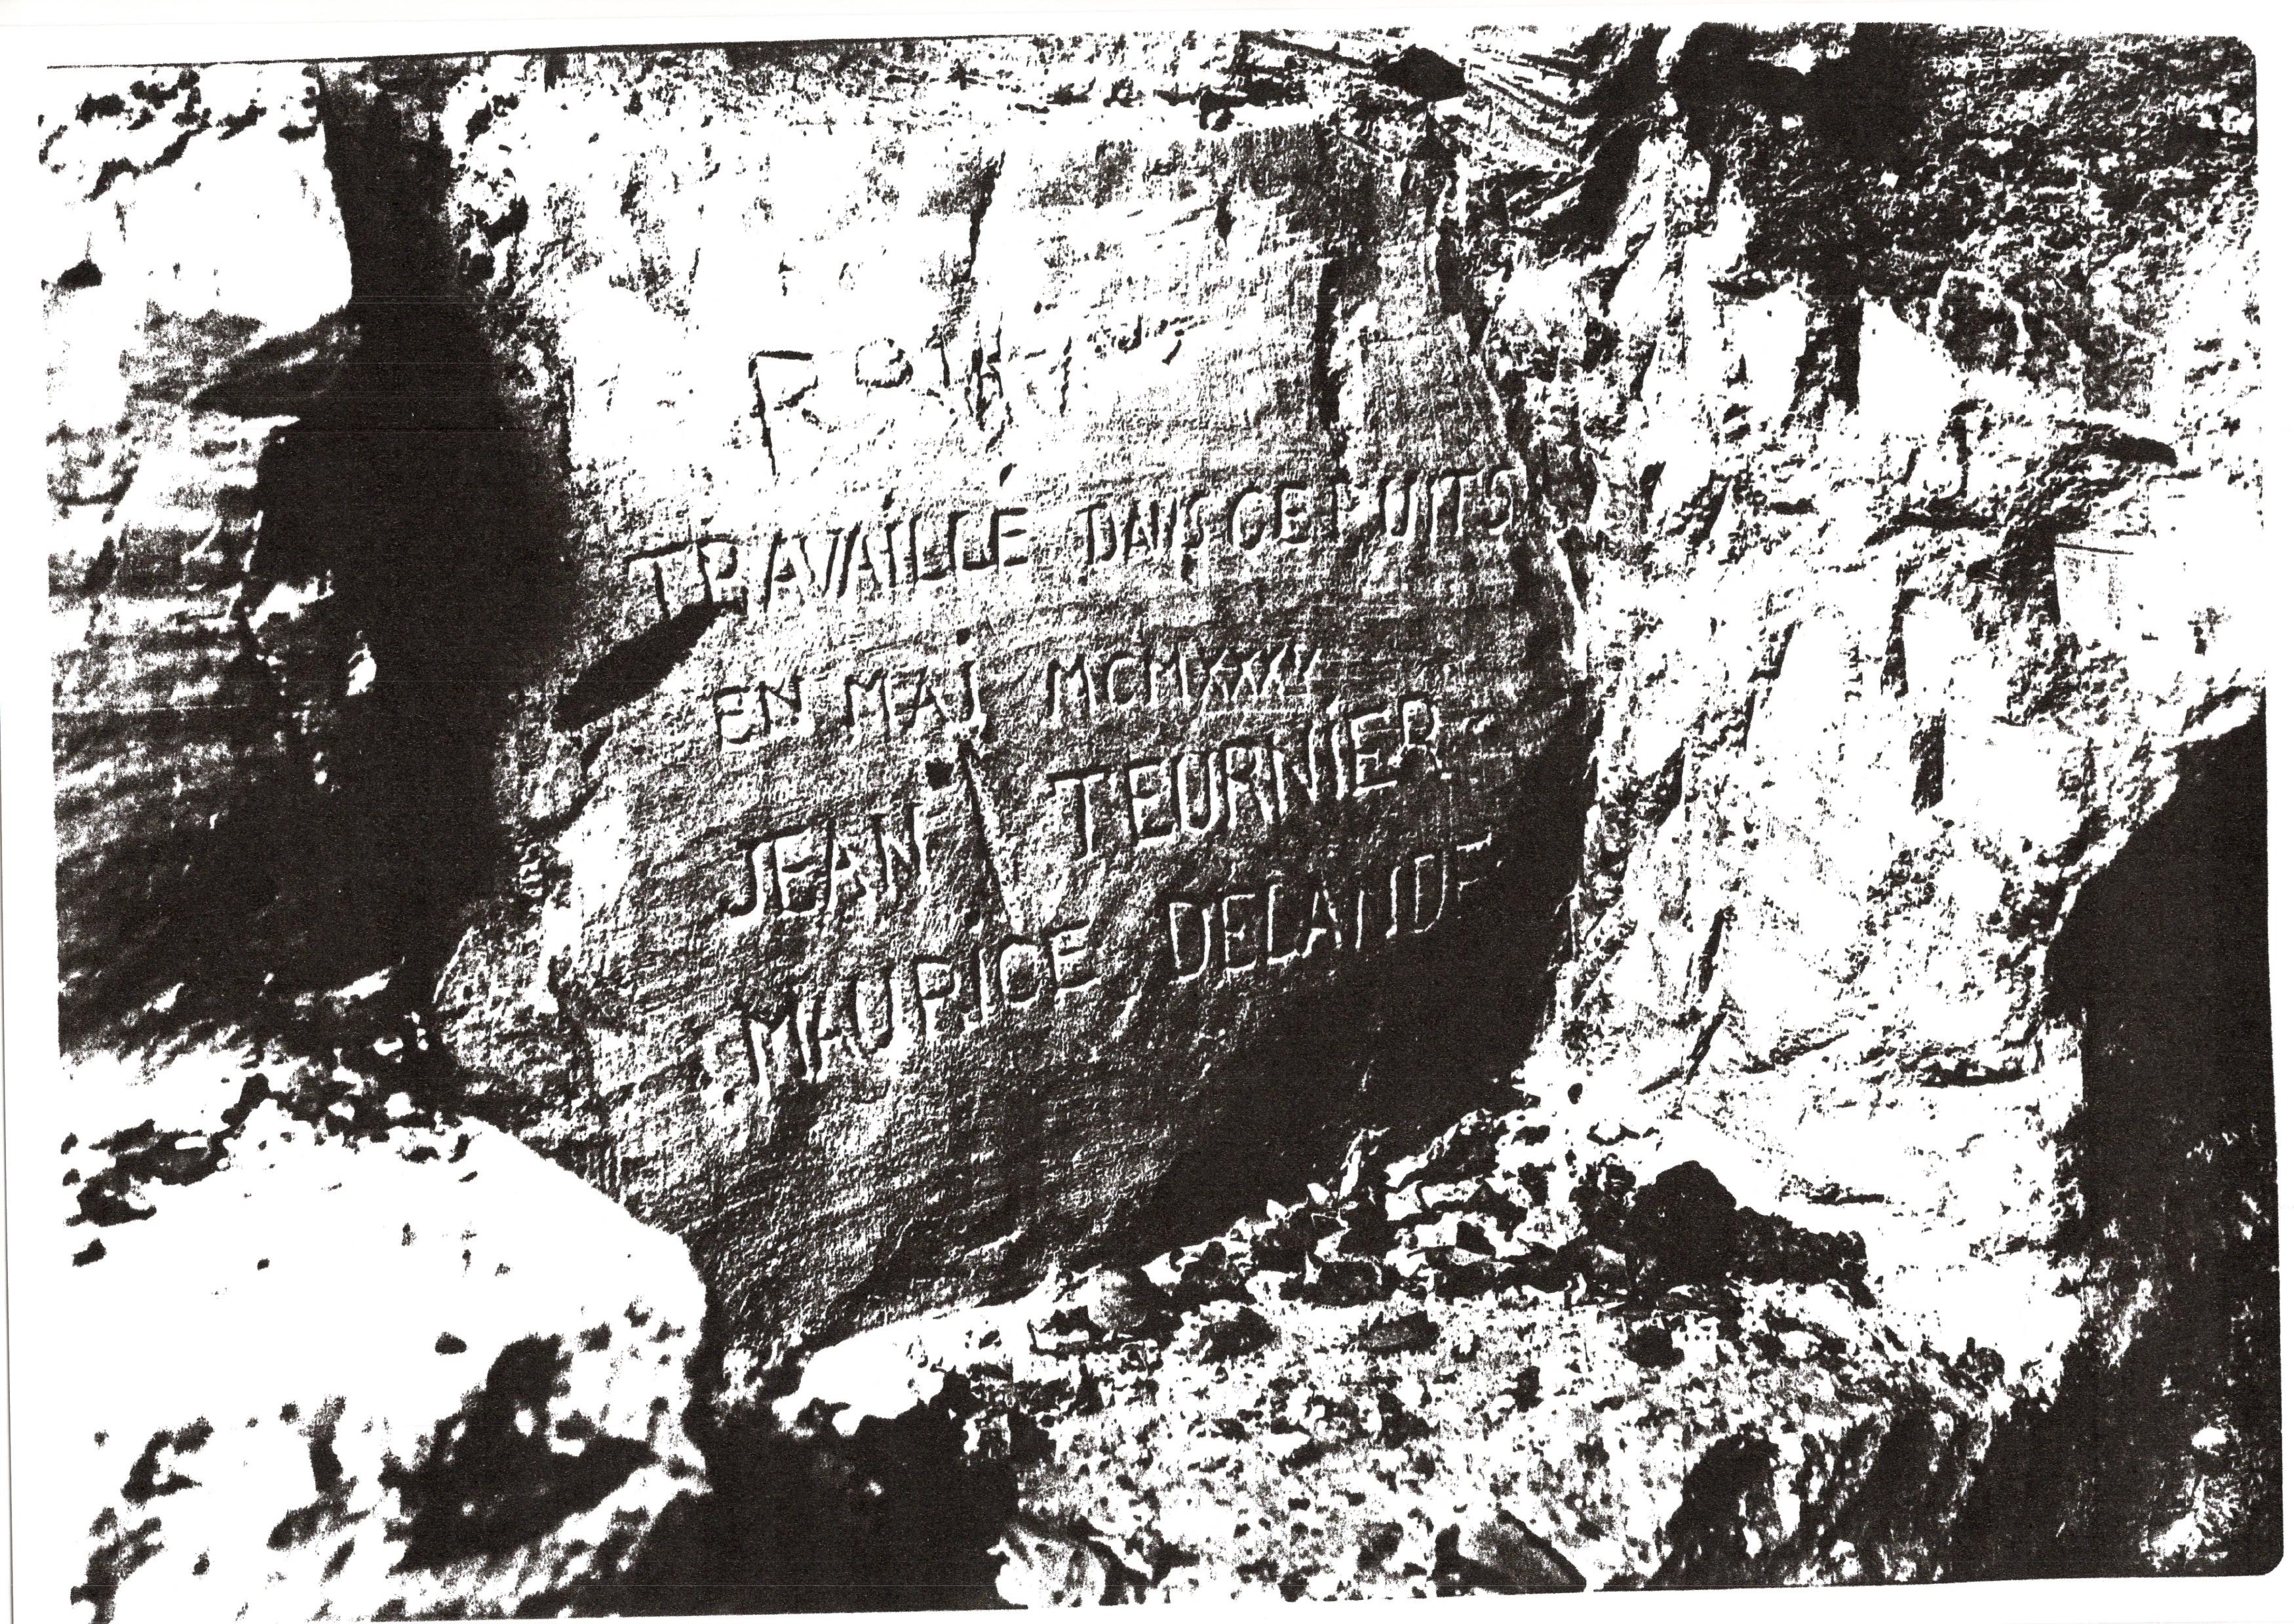 TRAVAILLE DANS CE PUITS
EN MAI MCMXXXX
JEAN TEURNIER
MAURICE DELANDE